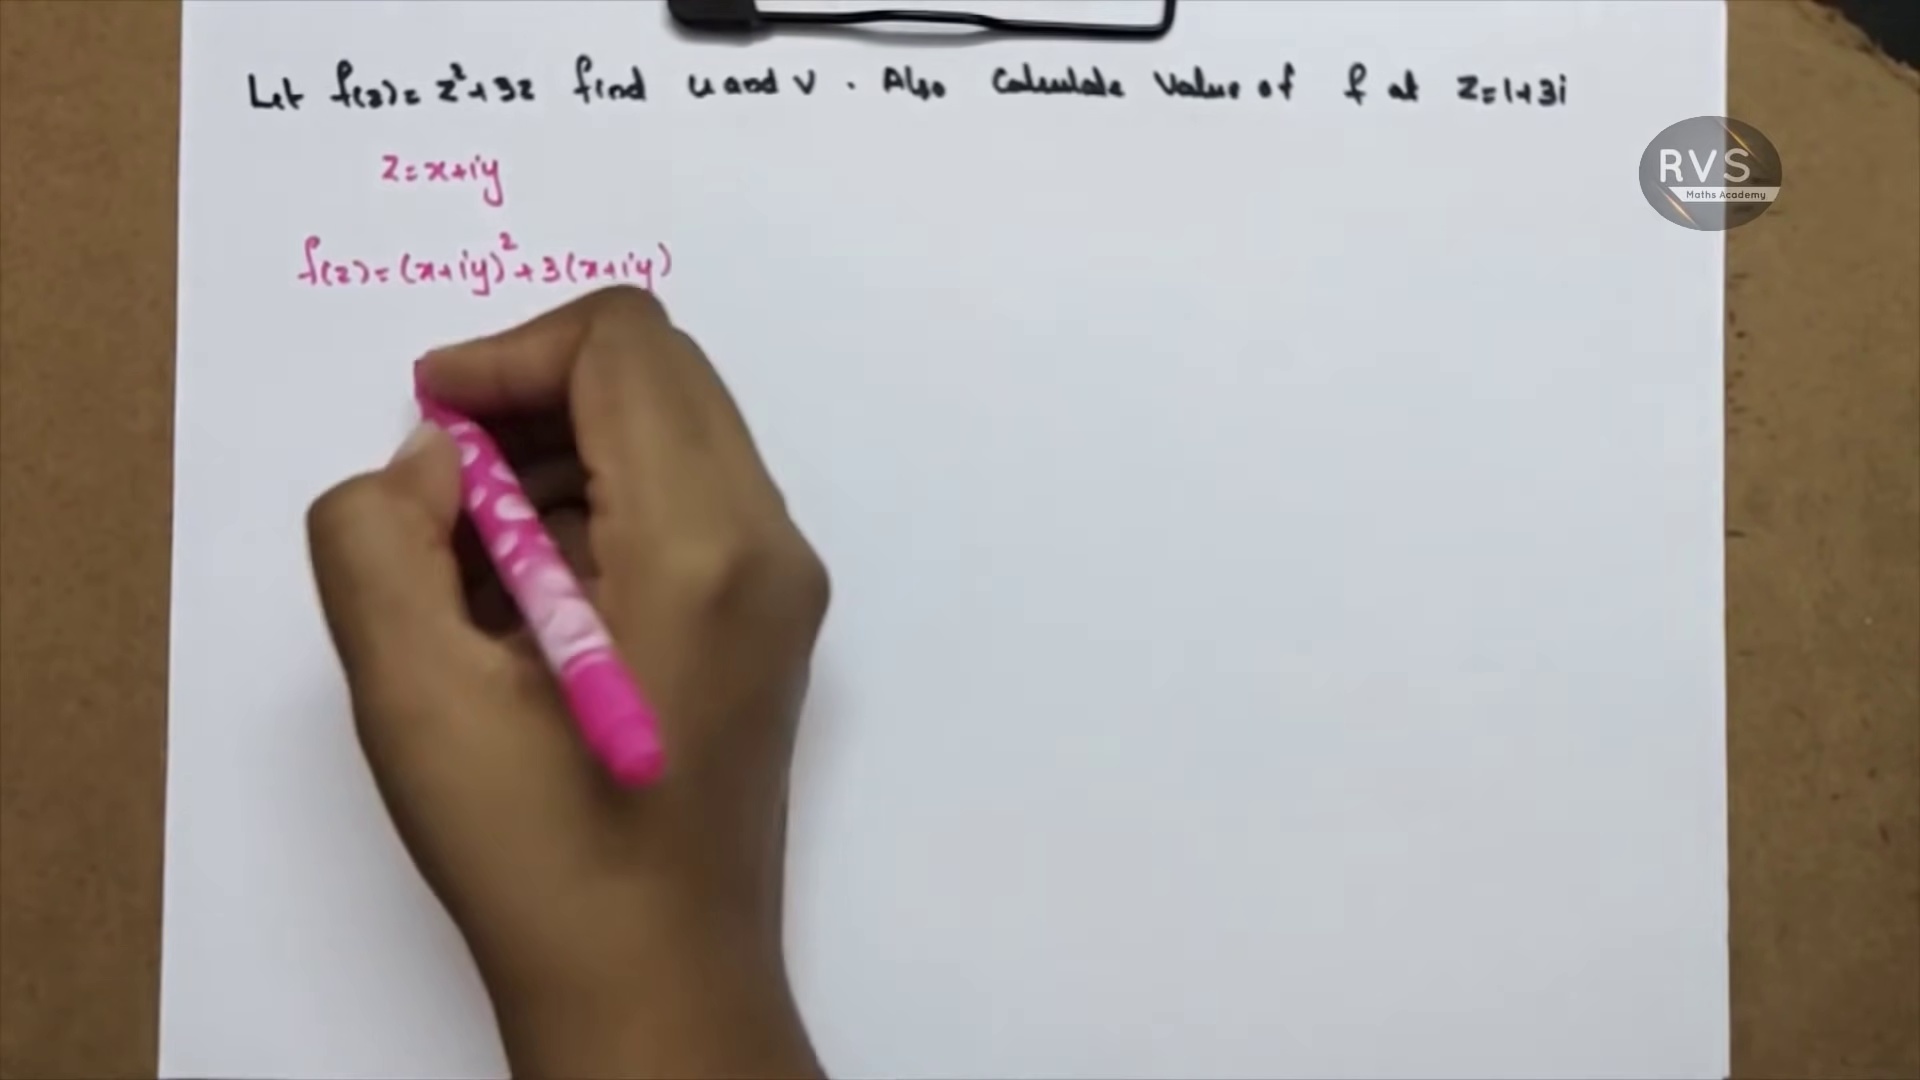 Let f(z) = z²+3z find u and v . Also Calculate Value of f at z=1+3i
z=x+iy
f(z)=(x+iy)²+3(x+iy)
RVS
Maths Academy